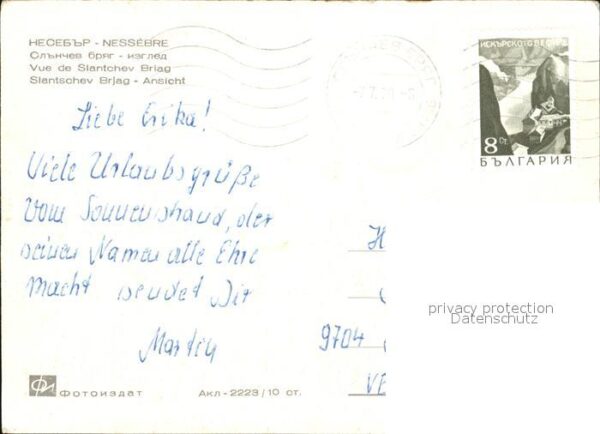 НЕСЕБЪР - NESSÉBRE
Слънчев бряг - изглед
Vue de Slantchev Briag
Slantschev Brjag - Ansicht
ИСКЪРСКОТО
8 СТ.
БЪЛГАРИЯ
Liebe Erika!
Viele Urlaubsgrüße
vom Sonnenstrand, der
seinen Namen alle Ehre
macht sendet Dir
Martin
H
9704
VE
privacy protection
Datenschutz
Фотоиздат
Акл-2223/10 ст.